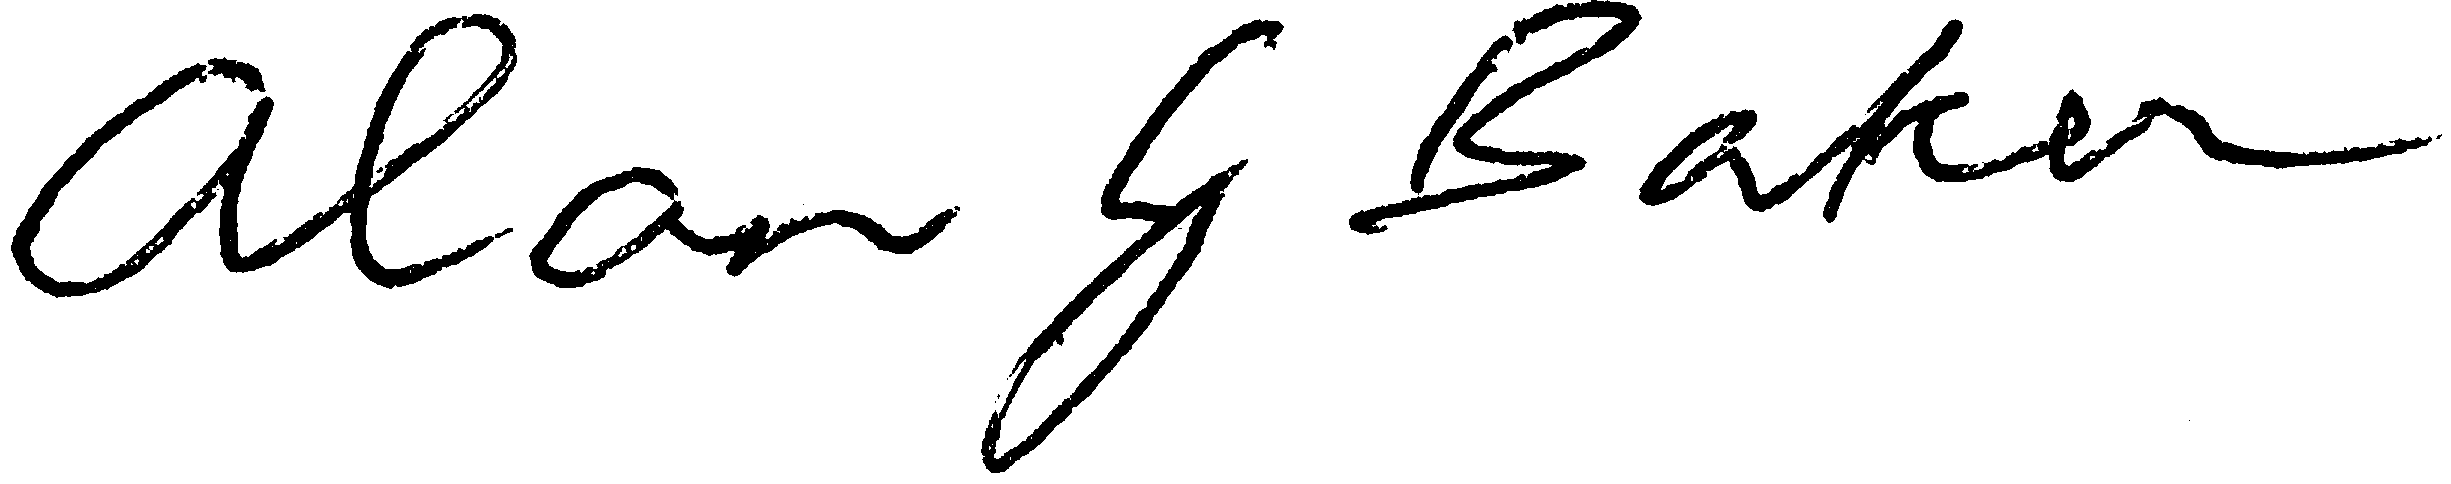 Alan G Baker